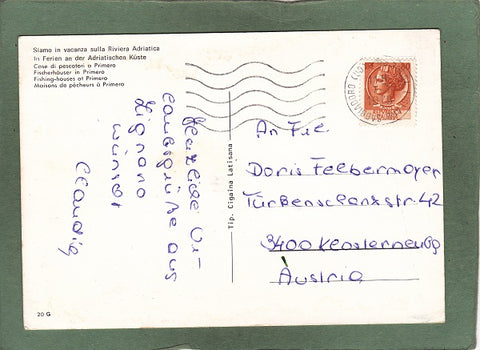 Siamo in vacanza sulla Riviera Adriatica
In Ferien an der Adriatischen Küste
Case di pescatori a Primero
Fischerhäuser in Primero
Fishing-houses at Primero
Maisons de pêcheurs à Primero
Herzliche Ur-
laubsgrüße aus
Lignano
wünscht
Claudia
Tip. Cigaina Latisana
An Frl.
Doris Felbermayer
Türkenschanzstr. 42
3400
Austria
20 G